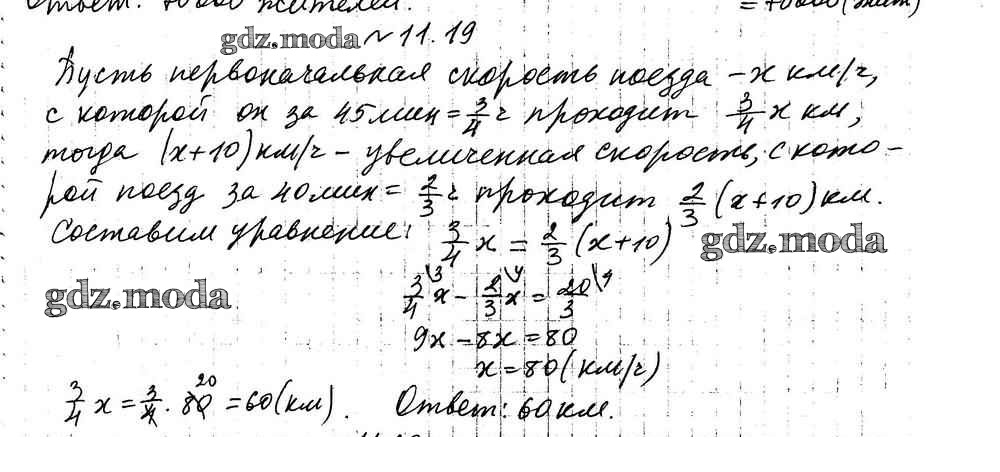 Ответ: 70000 жителей. = 70000 (жит)
gdz.moda № 11.19
Пусть первоначальная скорость поезда – х км/ч,
с которой он за 45 мин = 3/4 ч проходит 3/4 х км,
тогда (х+10) км/ч – увеличенная скорость, с кото-
рой поезд за 40 мин = 2/3 ч проходит 2/3 (х+10) км.
Составим уравнение: 3/4 х = 2/3 (х+10)
gdz.moda
gdz.moda
3/4 \3 х – 2/3 \4 х = 20/3 \4
9х – 8х = 80
х = 80 (км/ч)
3/4 х = 3/4 · 80 20 = 60 (км). Ответ: 60 км.